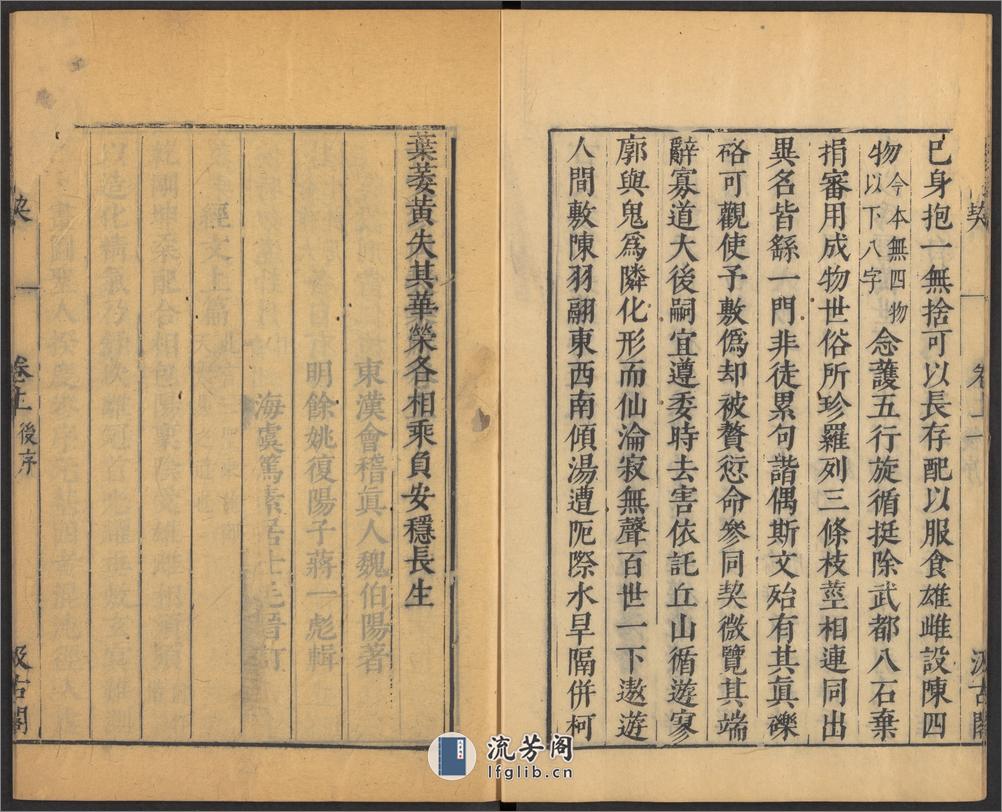 巳身抱一無捨可以長存配以服食雄雌設陳四
物今本無四物以下八字念護五行旋循挺除武都八石棄
捐審用成物世俗所珍羅列三條枝莖相連同出
異名皆繇一門非徒累句諧偶斯文殆有其眞礫
硌可觀使予敷僞却被贅愆命參同契微覽其端
辭寡道大後嗣宜遵委時去害依託丘山循遊寥
廓與鬼爲隣化形而仙淪寂無聲百世一下遨遊
人間敷陳羽翮東西南傾湯遭阨際水旱隔併柯
葉萎黃失其華榮各相乘負安穩長生
東漢會稽眞人魏伯陽著
明餘姚復陽子蔣一彪輯
海虞篤素居士毛晉訂
契
卷上後序
汲古閣
流芳阁
lfglib.cn